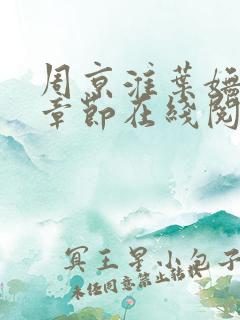 周京淮葉嫵
章節在綫閱
冥王星小包子
未经同意禁止转载